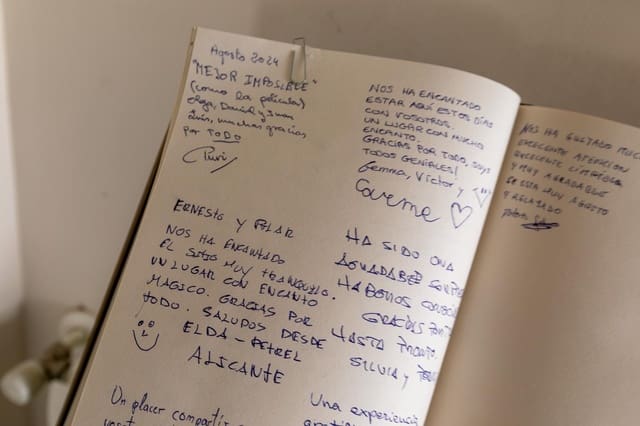 Agosto 2024
"MEJOR IMPOSIBLE"
(como la película)
Olga, David y Juan
Luis, muchas gracias
por TODO
Puri
NOS HA ENCANTADO
ESTAR AQUÍ ESTOS DÍAS
CON VOSOTROS.
UN LUGAR CON MUCHO
ENCANTO.
GRACIAS POR TODO, SOYS
TODOS GENIALES!
Gemma, Victor y
Carme
ERNESTO Y PILAR
NOS HA ENCANTADO
EL SITIO MUY TRANQUILO.
UN LUGAR CON ENCANTO
MAGICO. GRACIAS POR
TODO. SALUDOS DESDE
ELDA-PETREL
ALICANTE
HA SIDO UNA
AGRADABLE
HABERNOS
GRACIAS
HASTA PRONTO.
SILVIA y
Un placer
Una experiencia
NOS HA GUSTADO
EXCELENTE ATENCION
EXCELENTE LIMPIEZA
Y MUY AGRADABLE
SE ESTA MUY AGUSTO
Y RELAJADO